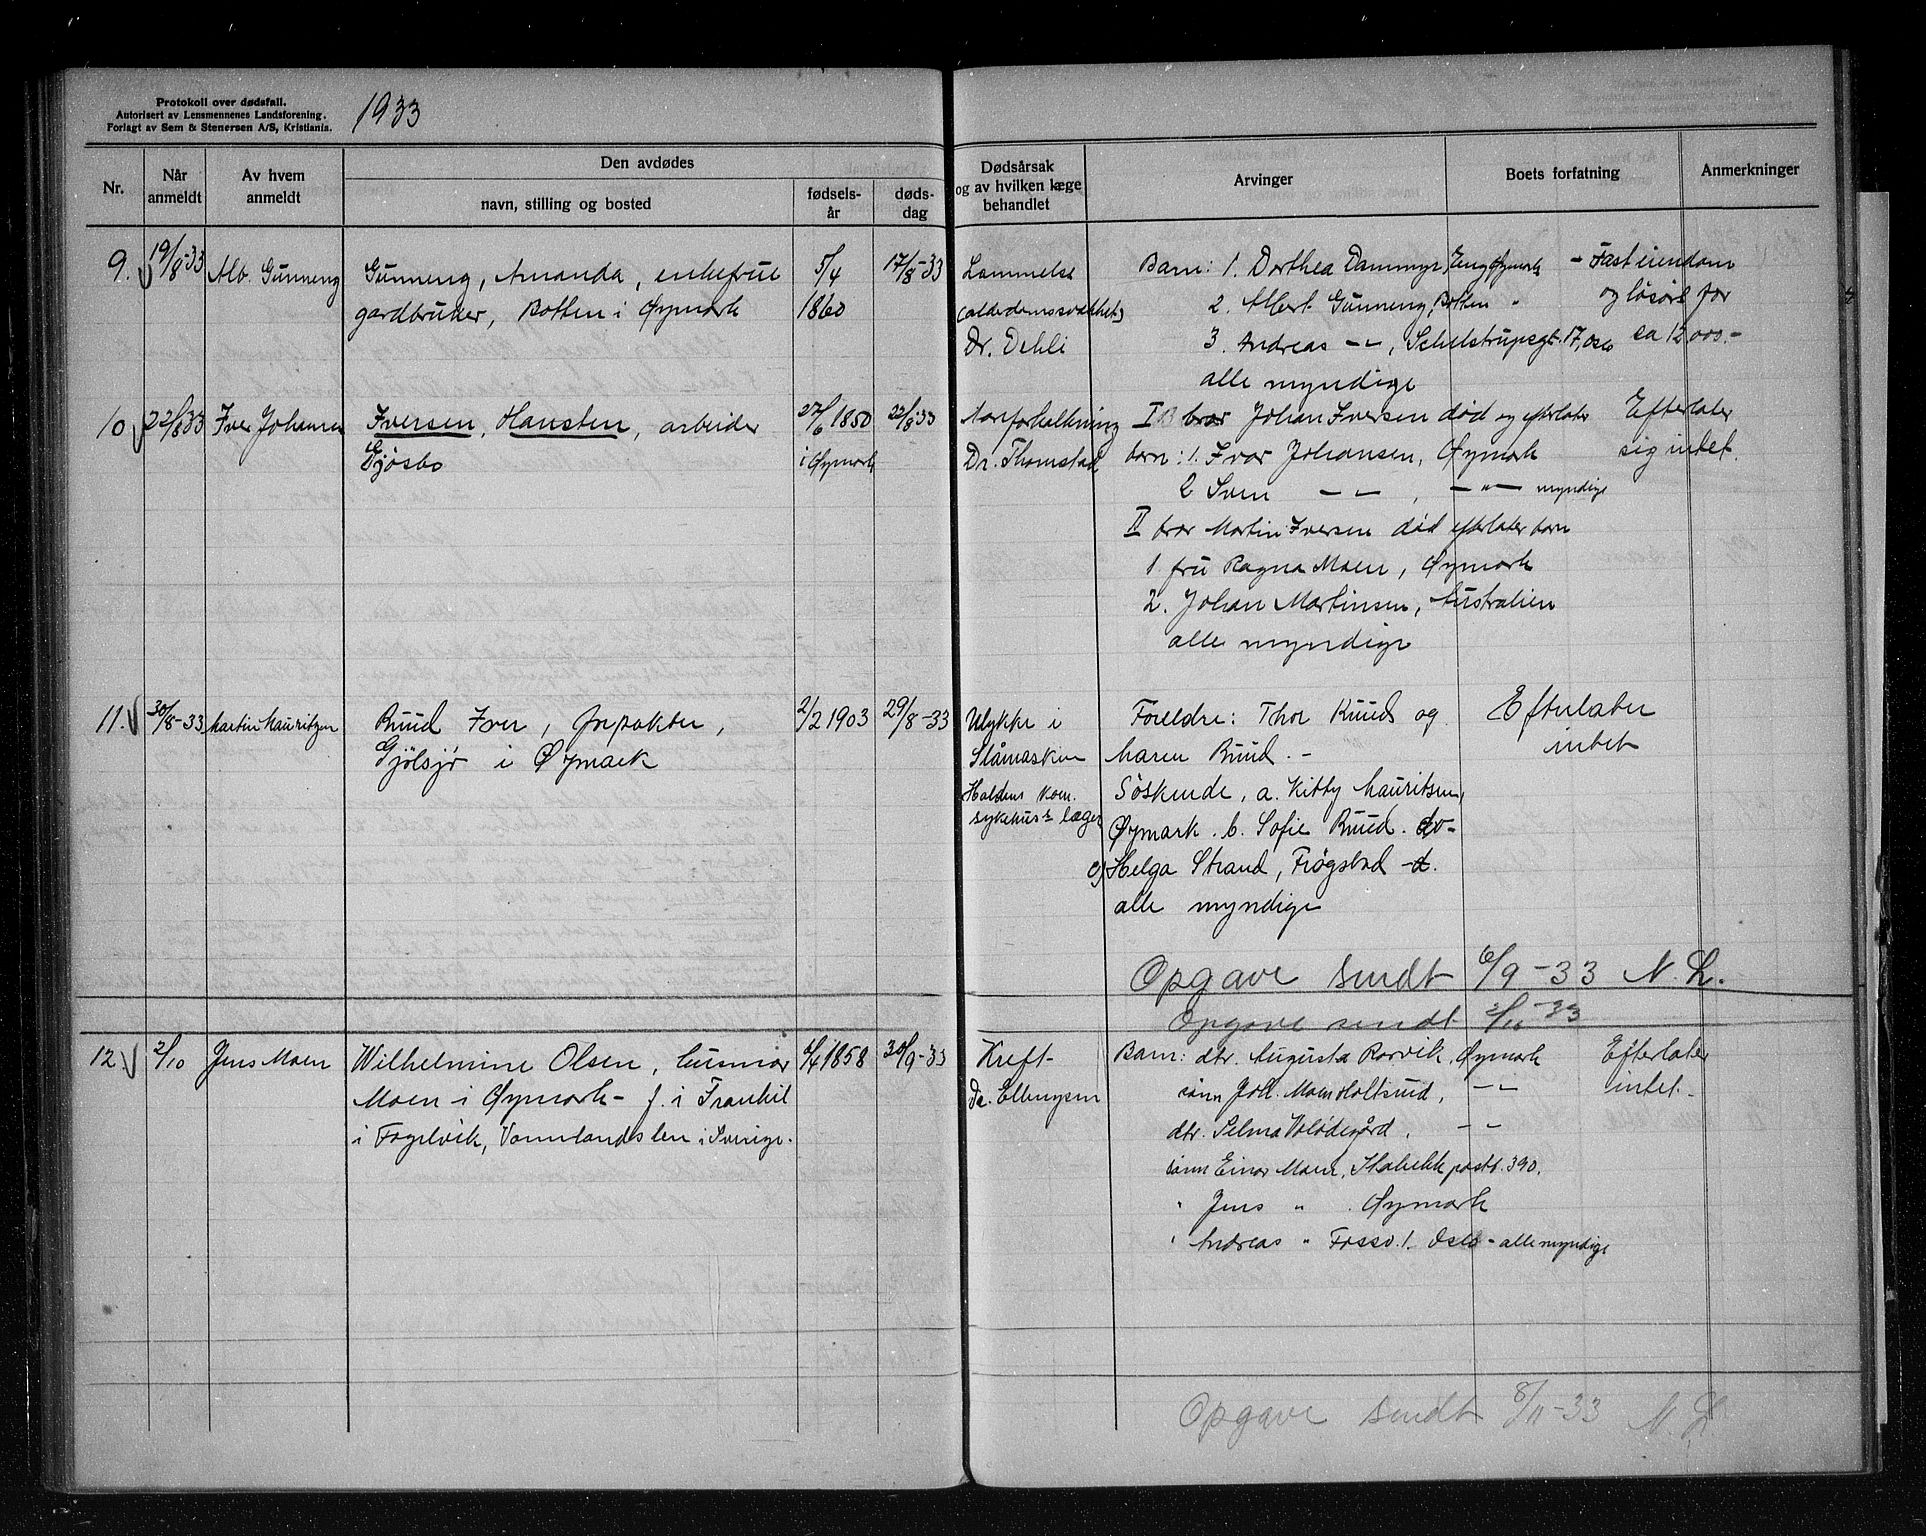 Protokoll over dødsfall.
Autorisert av Lensmennenes Landsforening.
Forlagt av Sem & Stenersen A/S, Kristiania.
1933
Nr.
Når anmeldt
Av hvem anmeldt
Den avdødes
navn, stilling og bosted
fødsels-år
døds-dag
Dødsårsak og av hvilken læge behandlet
Arvinger
Boets forfatning
Anmerkninger
9. 19/8-33 Alb. Gunneng Gunneng, Amanda, enkefrue 5/4 17/8-33 Lammelse Barn: 1. Dorthea Dammyr, Eng Øymark - Fast eiendom
gardbruker, Botten i Øymark 1860 (alderdomssvakhet) 2. Albert Gunneng, Botten " og løsøre for
Dr. Dehli 3. Andreas - " -, Schelstrupsgt. 17, Oslo ca 12000.-
alle myndige
10 22/8 33 Iver Johansen Iversen, Hansten, arbeider 27/6 1850 22/8 33 Aareforkalkning I bror Johan Iversen død og efterlater Efterlater
Gjøsbo i Øymark Dr. Thomstad barn: 1. Ivar Johansen, Øymark sig intet.
2 Sven - - , - " - myndige
II bror Martin Iversen død efterlater barn
1 fru Ragna Moen, Øymark
2. Johan Martinsen, Australien
alle myndige
11. 30/8-33 Martin Mauritzen Ruud Iver, forpakter, 2/2 1903 29/8-33 Ulykke i Foreldre: Thor Ruud og Efterlater
Gjølsjø i Øymark Slåmaskin Maren Ruud. - intet
Haldens kom. Søskende, a. Kitty Mauritsen,
sykehus's læger Øymark. b. Sofie Ruud. do-
c) Helga Strand, Trøgstad - d.
alle myndige
Opgave sendt 6/9-33 N. L.
Opgave sendt 2/10-33
12. 2/10 Jens Moen Wilhelmine Olsen, husmor 4/4 1858 30/9-33 Kreft- Barn: dtr. Augusta Rørvik, Øymark Efterlater
Moen i Øymark - f. i Trankil Dr. Ellingsen sønn Joh. Moen Holtsrud, - " - intet.
i Fogelvik, Varmlandslen i Sverige. dtr. Selma Volødegård, - " -
sønn Einar Moen, Stabekk postb. 390.
" Jens " . Øymark
" Andreas " Fossv. 1. Oslo - alle myndige
Opgave sendt 8/11-33 N. L.